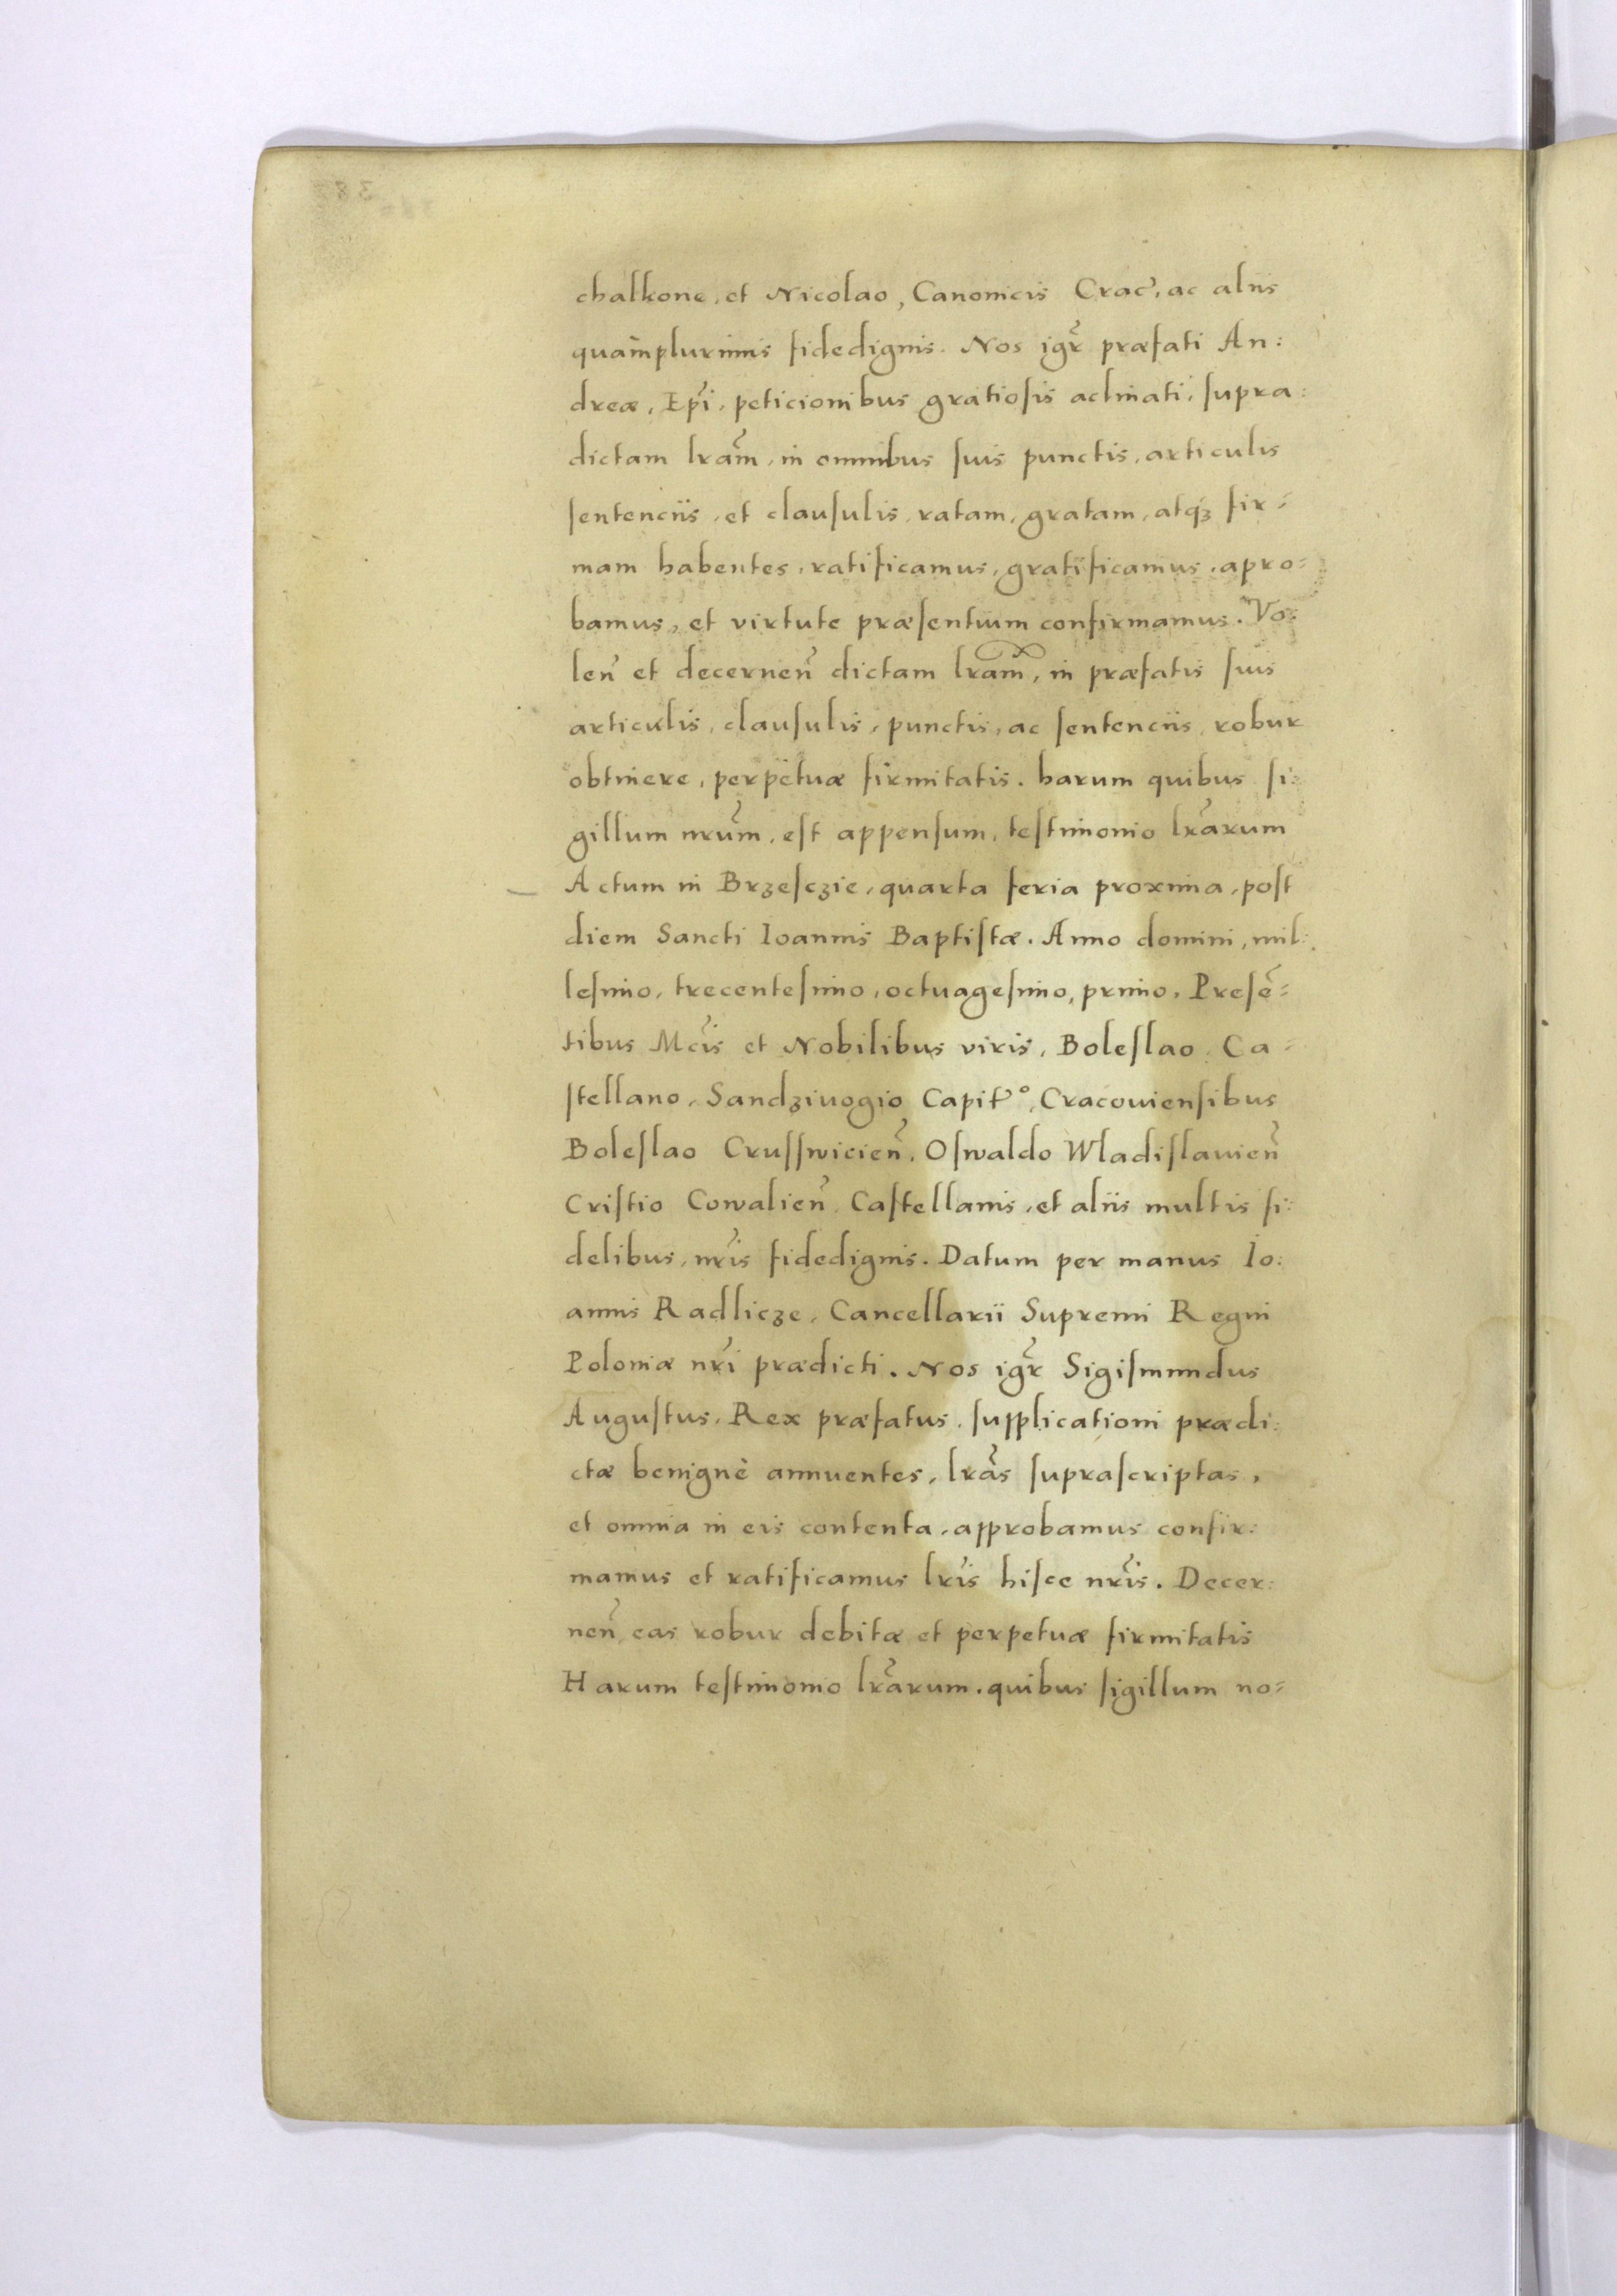 chalkone, et Nicolao, Canonicis Crac̃, ac aliis
quàmplurimis fidedignis. Nos igr̃ præfati An:
dreæ, Ep̃i, peticionibus gratiosis aclinati, supra:
dictam lr̃am, in omnibus suis punctis, articulis
sentenciis, et clausulis, ratam, gratam, atq́ꝫ fir:
mam habentes, ratificamus, gratificamus, apro:
bamus, et virtute præsentium confirmamus. Vo:
leñ et decerneñ dictam lr̃am, in præfatis suis
articulis, clausulis, punctis, ac sentenciis, robur
obtinere, perpetuæ firmitatis. harum quibus si:
gillum nr̃um, est appensum, testimonio lr̃arum
Actum in Brzesczie, quarta feria proxima, post
diem Sancti Ioannis Baptistæ. Anno domini, mil:
lesimo, trecentesimo, octuagesimo, primo. Presẽ:
tibus Mc̃is et Nobilibus viris, Boleslao, Ca:
stellano, Sandziuogio Capit̃º, Cracouiensibus
Boleslao Crusswicieñ, Oswaldo Wladislauieñ
Cristio Cowalieñ Castellanis, et aliis multis fi:
delibus, nr̃is fidedignis. Datum per manus Io:
annis Radlicze, Cancellarii Supremi Regni
Poloniæ nr̃i prædicti. Nos igr̃ Sigismundus
Augustus, Rex præfatus, supplicationi prædi:
ctæ benignè annuentes, lr̃as suprascriptas,
et omnia in eis contenta, approbamus confir:
mamus et ratificamus lr̃is hisce nr̃is. Decer:
neñ, eas robur debitæ et perpetuæ firmitatis
Harum testimonio lr̃arum. quibus sigillum no: